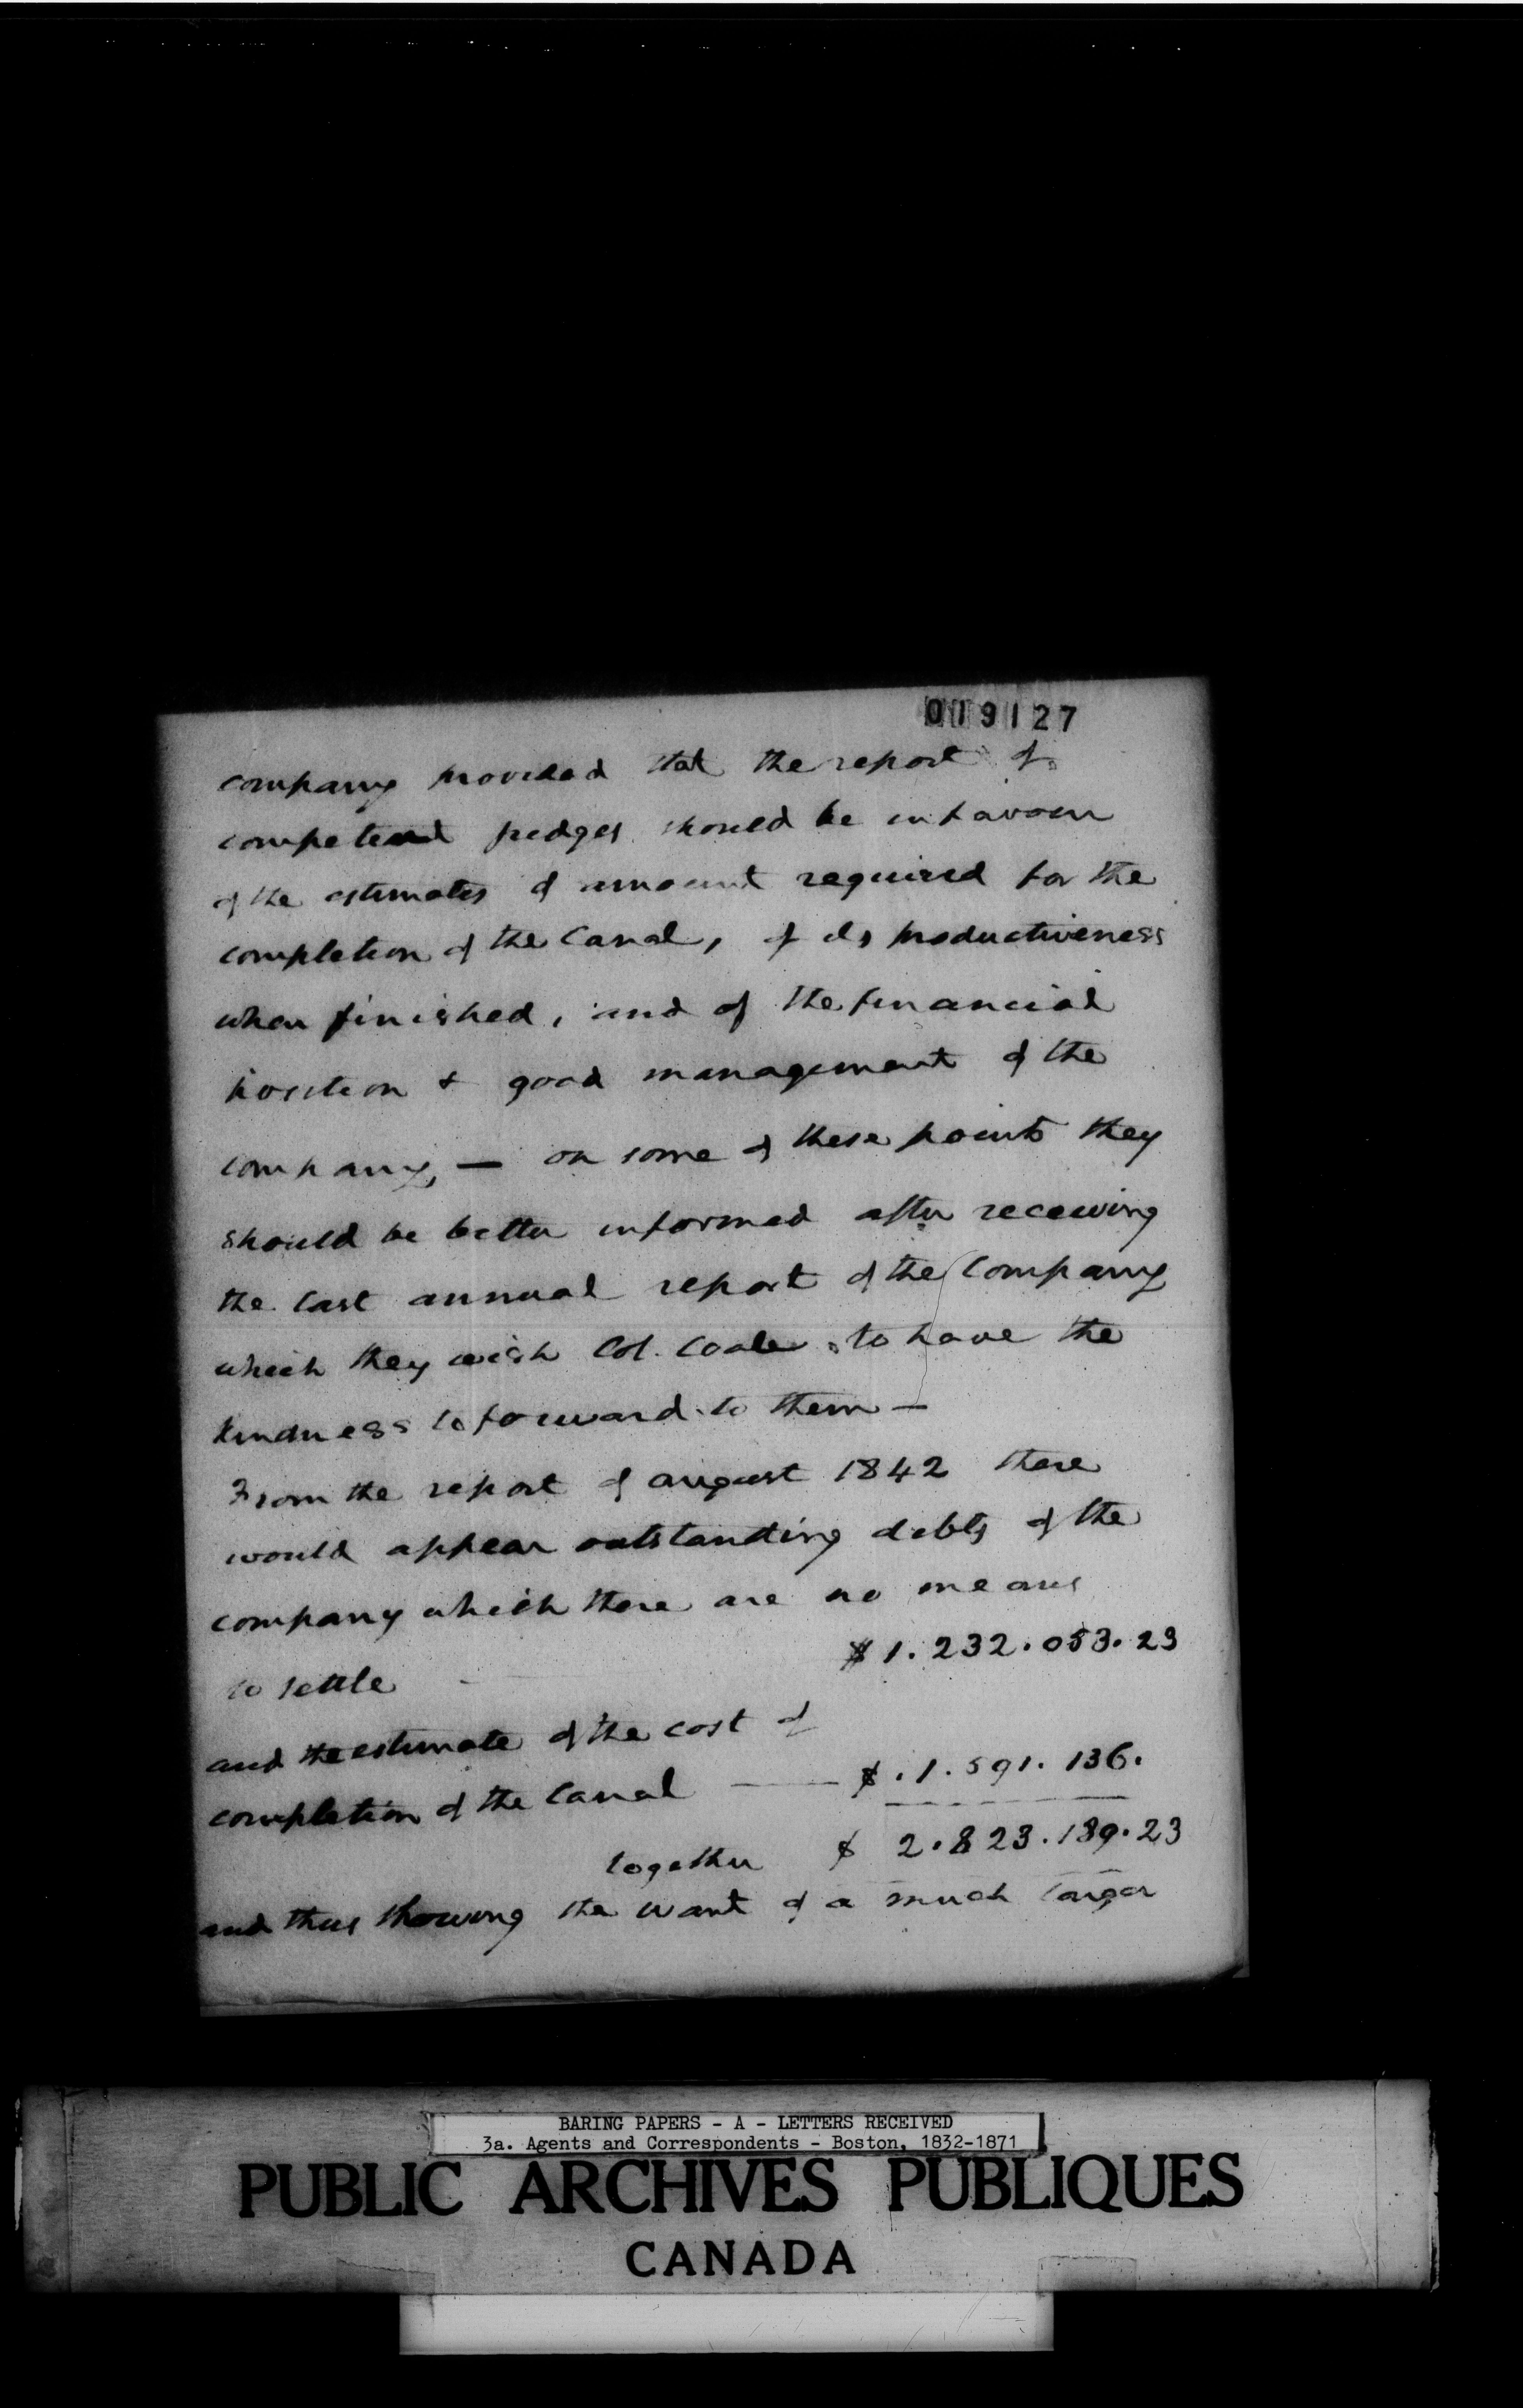 019127
company provided that the report of
competent judges should be in favour
of the estimates of amount required for the
completion of the Canal, of its productiveness
when finished, and of the financial
position & good management of the
company, — on some of these points they
should be better informed after receiving
the last annual report of the Company
which they wish Col. Coale to have the
kindness to forward to them —
From the report of august 1842 there
would appear outstanding debts of the
company which there are no means
to settle $ 1.232.053.23
and the estimate of the cost of
completion of the Canal —— $.1.591.136.
together $ 2.823.189.23
and thus showing the want of a much larger
BARING PAPERS - A - LETTERS RECEIVED
3a. Agents and Correspondents - Boston, 1832-1871
PUBLIC ARCHIVES PUBLIQUES
CANADA